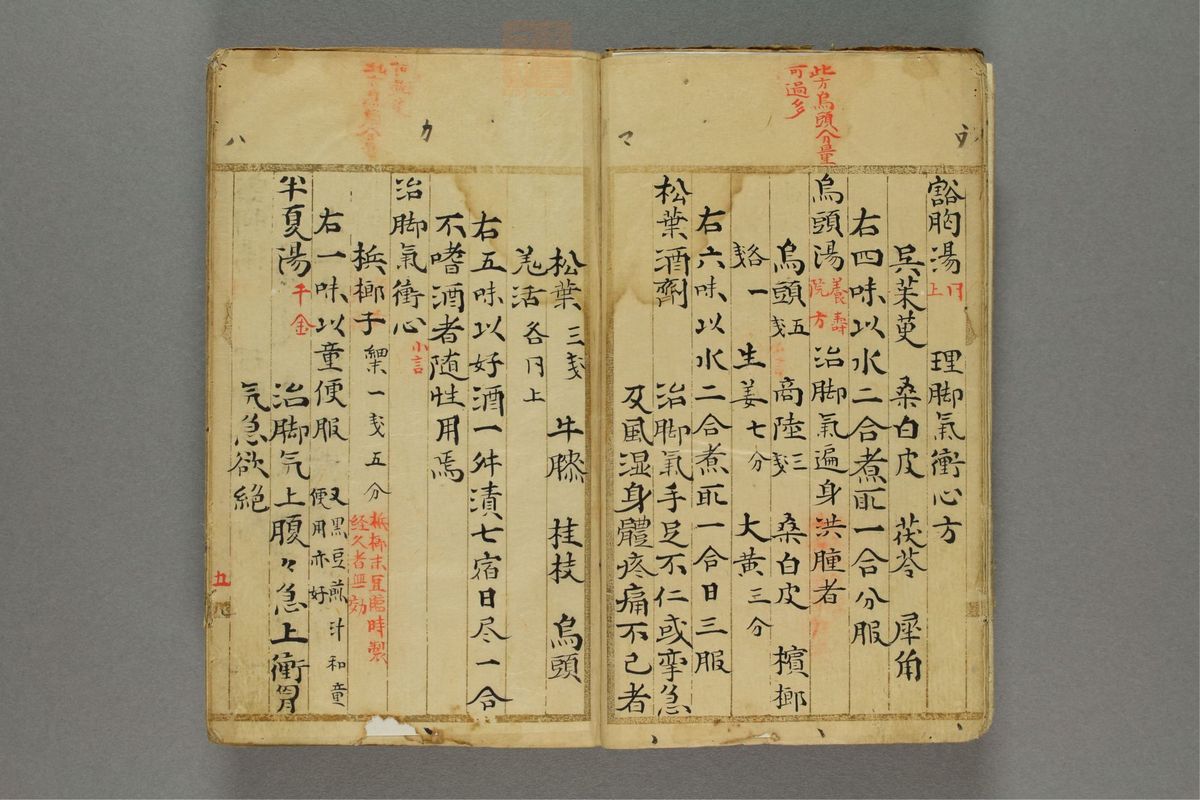 此方烏頭分量
可過多
ウ
豁胸湯 同上 理脚氣衝心方
呉茱萸 桑白皮 茯苓 犀角
右四味以水二合煮取一合分服
烏頭湯 養壽院方 治脚氣遍身洪腫者
烏頭五戔 商陸三戔 桑白皮 檳榔
各一戔 生姜七分 大黄三分
右六味以水二合煮取一合日三服
松葉酒劑 治脚氣手足不仁或挛急
及風湿身體疼痛不已者
マ
松葉三戔 牛膝 桂枝 烏頭
羌活各同上
右五味以好酒一舛漬七宿日尽一合
不嗜酒者随性用焉
カ
治脚氣衝心
梹榔子 細 一戔五分 梹榔末宜臨時製
経久者無効
右一味以童便服 又黒豆煎汁和童
便用亦好
半夏湯 千金 治脚気上腹々急上衝胃
気急欲絶
ハ
五